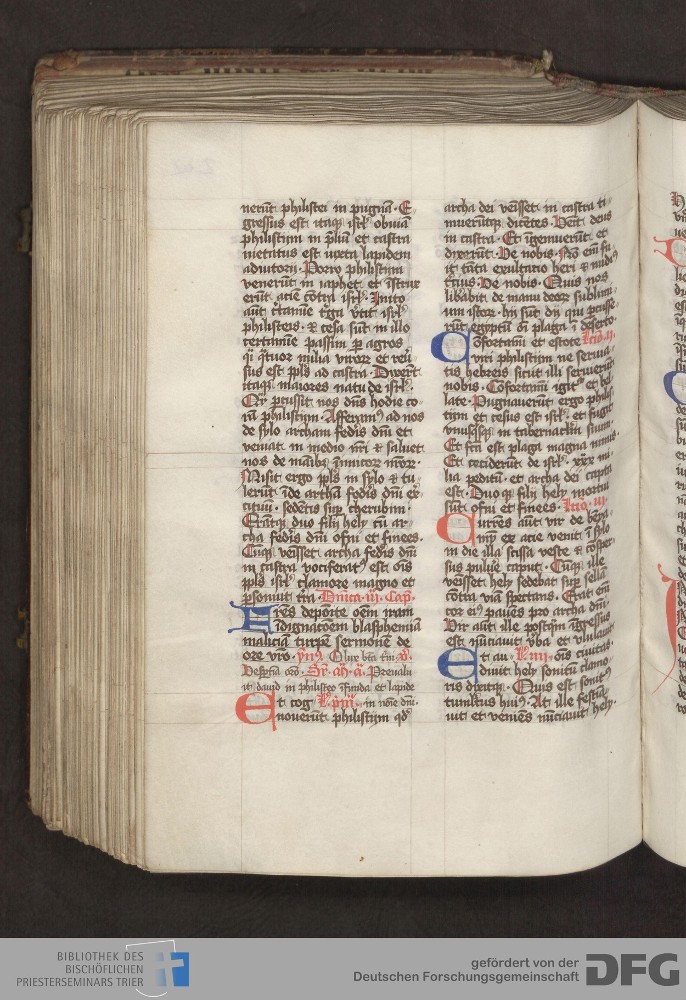 nerūt philistei in pugnā. E-
gressus est itaq; isrl' obuiā
philistijm in p̄liū et castra
metatus est iuxta lapidem
adiutorij. Porro philistijm
venerūt in iaphet et īstrux
erūt aciē cōtra isrl'. Inito
aūt c̄tamīe t̄ga v̄tit isrl'
philisteis. et cesa sūt in illo
certamīe passim per agros
q̄i q̄tuor milia viror et reū-
sus est ppl̄s ad castra. Dixerūt
itaq; maiores natu de isrl'.
Qr̄ p̄cussit nos dn̄s hodie co-
rā philistijm. Afferam9 ad nos
de sylo archam fedīs dn̄i et
veniat in medio nr̄i et saluet
nos de manib; inimicor nr̄or.
Misit ergo ppl̄s in sylo et tu-
lerūt īde archā fedīs dn̄i ex̄-
cituū. sedētis sup cherubim.
Eratq; duo filij hely cū ar-
cha fedīs dn̄i ofni et finees.
Cūq; venīsset archa fedīs dn̄i
in castra vociferat9 est om̄is
ppl̄s isrl' clamore magno et
p̄sonuit t̄ra. Dn̄ica. iij. Cap̄.
Fr̄es depoīte om̄em iram
īdignatōem blasphemiā
maliciā turpē sermonē de
ore vr̄o.
it dauid in philisteo īfunda et lapide
Et cog in noīe dn̄i
nouerūt philistijm qd'
archa dei venīsset in castra ti-
mueruntq; dicētes. Venit deus
in castra. Et īgemuerūt et
dixerūt. Ve nobis. Nō em̄ fu-
it tāta exultatio heri et nudi9
t̄cius. Ve nobis. Quis nos
libābit de manu deor sublimi-
um istor. hij sūt dij qui p̄cusse-
rūt egyptū om̄i plaga ī deserto.
Cōfortamī et estote lc̄io. ij.
viri philistijm ne seruia-
tis hebreis sicut illi seruierūt
nobis. Cōfortamī igit' et bel-
late. Pugnauerūt ergo philis-
tijm et cesus est isrl'. et fugit
vnusq̄sq; in tabernaclm̄ suum.
Et fc̄a est plaga magna nimis.
Et ceciderūt de isrl'. xxx. mi-
lia peditū. et archa dei capta
est. Duoq; filij hely mortui
sūt ofni et finees. lc̄io. iij.
Currēs aūt vir de benia-
mȳ ex acie venit ī sylo
in die illa scissa veste et cōsper-
sus puluē caput. Cūq; ille
venīsset hely sedebat sup sella
cōtra viā spectans. Erat em̄
cor ei9 pauēs pro archa dn̄i.
Vir aūt ille postqm̄ īgressus
est. nūciauit v̄ba et vlulauit
om̄is ciuitas.
dīuit hely sonitū clamo-
ris dixitq;. Quis est sonit9
tumltus hui9. At ille festīa-
uit et veniēs nūciauit hely.
BIBLIOTHEK DES
BISCHÖFLICHEN
PRIESTERSEMINARS TRIER
gefördert von der
Deutschen Forschungsgemeinschaft
DFG